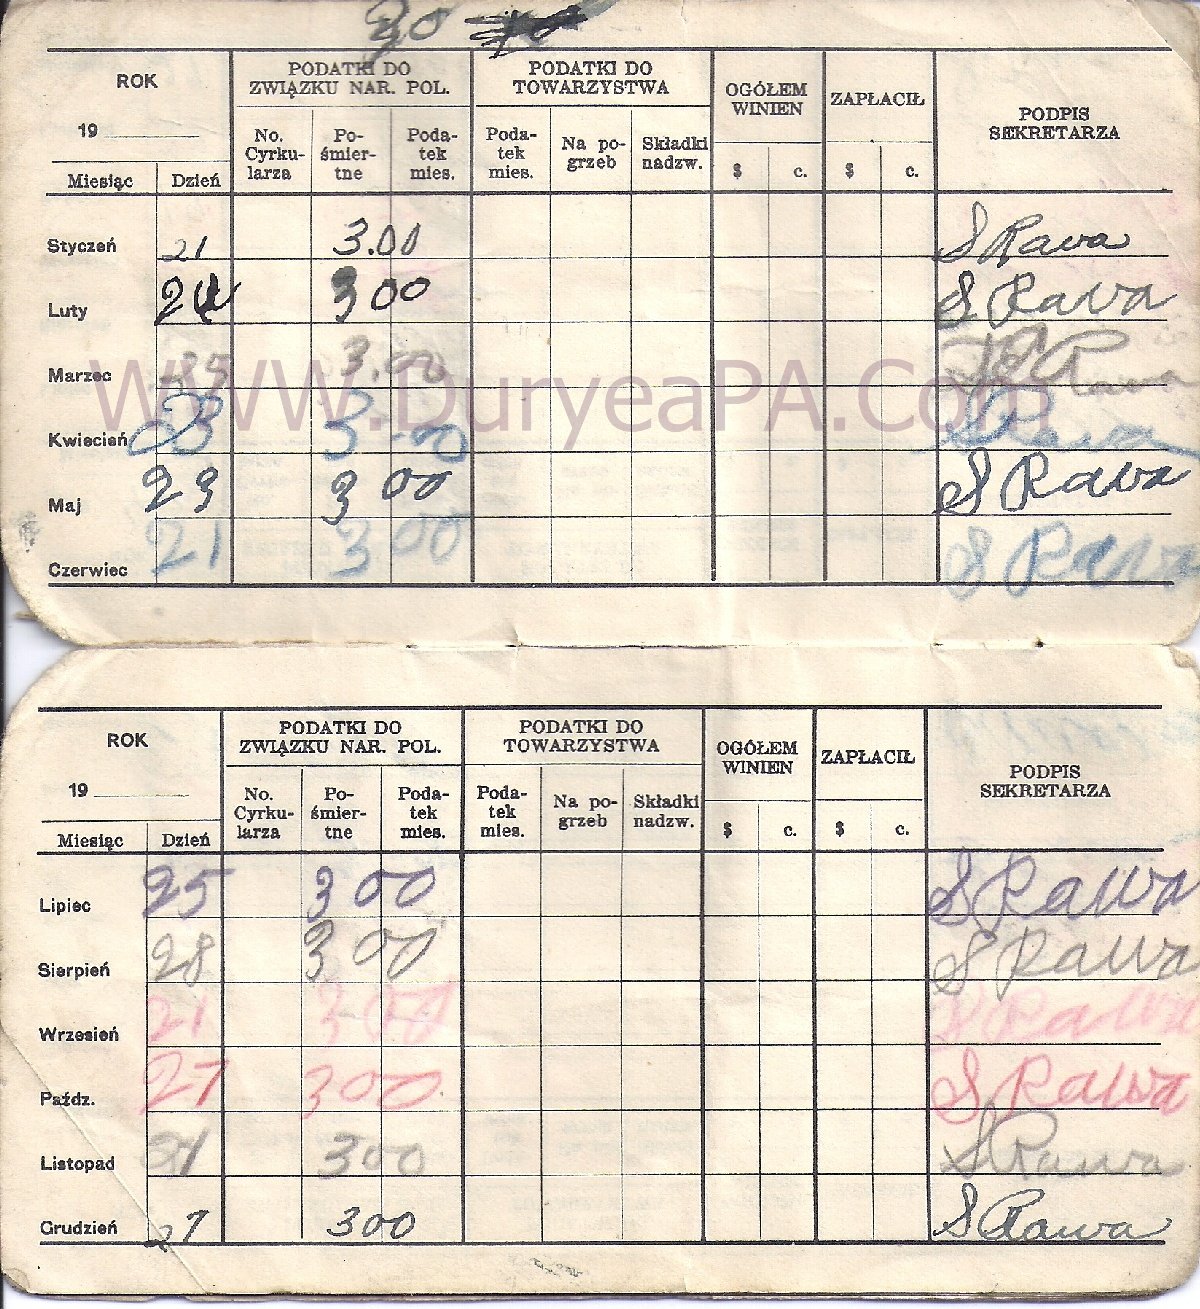 30
ROK
PODATKI DO ZWIĄZKU NAR. POL.
PODATKI DO TOWARZYSTWA
OGÓŁEM WINIEN
ZAPŁACIŁ
PODPIS SEKRETARZA
19
No. Cyrku-larza
Po-śmier-tne
Poda-tek mies.
Poda-tek mies.
Na po-grzeb
Składki nadzw.
$ c. $ c.
Miesiąc Dzień
Styczeń 21 3.00 S Rawa
Luty 24 3 00 S Rawa
Marzec 25 3.00 Rawa
WWW.DuryeaPA.Com
Kwiecień 23 3-00 S Rawa
Maj 23 3 00 S Rawa
Czerwiec 21 3 00 S Rawa
ROK
PODATKI DO ZWIĄZKU NAR. POL.
PODATKI DO TOWARZYSTWA
OGÓŁEM WINIEN
ZAPŁACIŁ
PODPIS SEKRETARZA
19
No. Cyrku-larza
Po-śmier-tne
Poda-tek mies.
Poda-tek mies.
Na po-grzeb
Składki nadzw.
$ c. $ c.
Miesiąc Dzień
Lipiec 25 3 00 S Rawa
Sierpień 28 3 00 S Rawa
Wrzesień 21 3-00 S Rawa
Paźdz. 27 3 00 S Rawa
Listopad 3 00 S Rawa
Grudzień 27 3 00 S Rawa